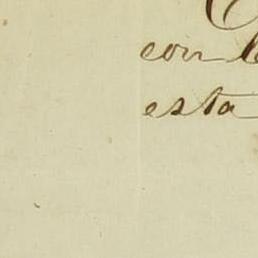 con
esta